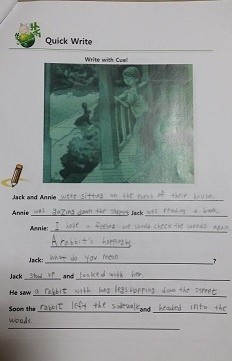 Quick Write
Write with Cue!
Jack and Annie were sitting on the porch of their house.
Annie was gazing down the street Jack was reading a book.
Annie: I have a feeling we should check the woods again
A rabbit's hopping
Jack: What do you mean ?
Jack stood up and looked with her.
He saw a rabbit with long legs hopping down the street
Soon the rabbit left the sidewalk and headed into the
woods.